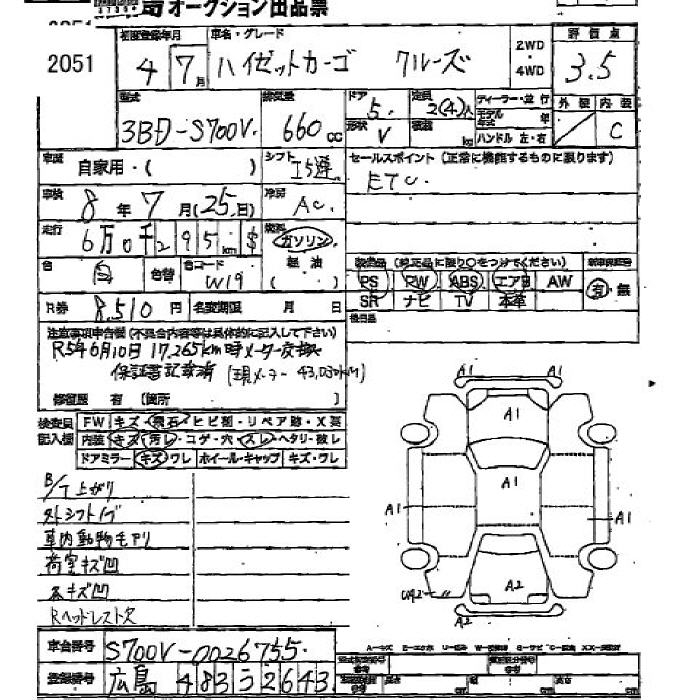 オークション出品票
2051
初度登録年月
4年7月
車名・グレード
ハイゼットカーゴ クルーズ
2WD
4WD
評価点
3.5
型式
3BD-S700V
排気量
660cc
ドア
5
形状
V
定員
2(4)人
積載
kg
ディーラー・並行
モデル年式 年
ハンドル 左・右
外装 内装
C
車歴
自家用・( )
シフト
I5速
セールスポイント(正常に機能するものに限ります)
ETC.
車検
8年7月(25日)
冷房
AC
走行
6万0千295km $
燃料
ガソリン
軽油
( )
色
白
色替
色コード
W19
装備品(純正品に限り○をつけてください)
PS PW ABS エアB AW
SR ナビ TV 本革
新車保証書
有・無
R券
8,510円
名変期限 月 日
後日品
注意事項申告欄(不具合内容等は具体的に記入して下さい)
R5年6月10日 17,265km時メーター交換
保証書記載済 (現メーター 43,030KM)
修復歴 有 [箇所 ]
検査員記入欄
FW キズ・飛石・ヒビ割・リペア跡・X要
内装 キズ・汚レ・コゲ・穴・スレ・ヘタリ・破レ
ドアミラー キズ・ワレ ホイール・キャップ キズ・ワレ
B/T上がり
外シフトノブ
車内動物毛アリ
荷室キズ凹
小キズ凹
Rヘッドレスト欠
A1 A1
A1
A1
A1
A1
A2
A2
車台番号
S700V-0026755
登録番号
広島 483 う 2643